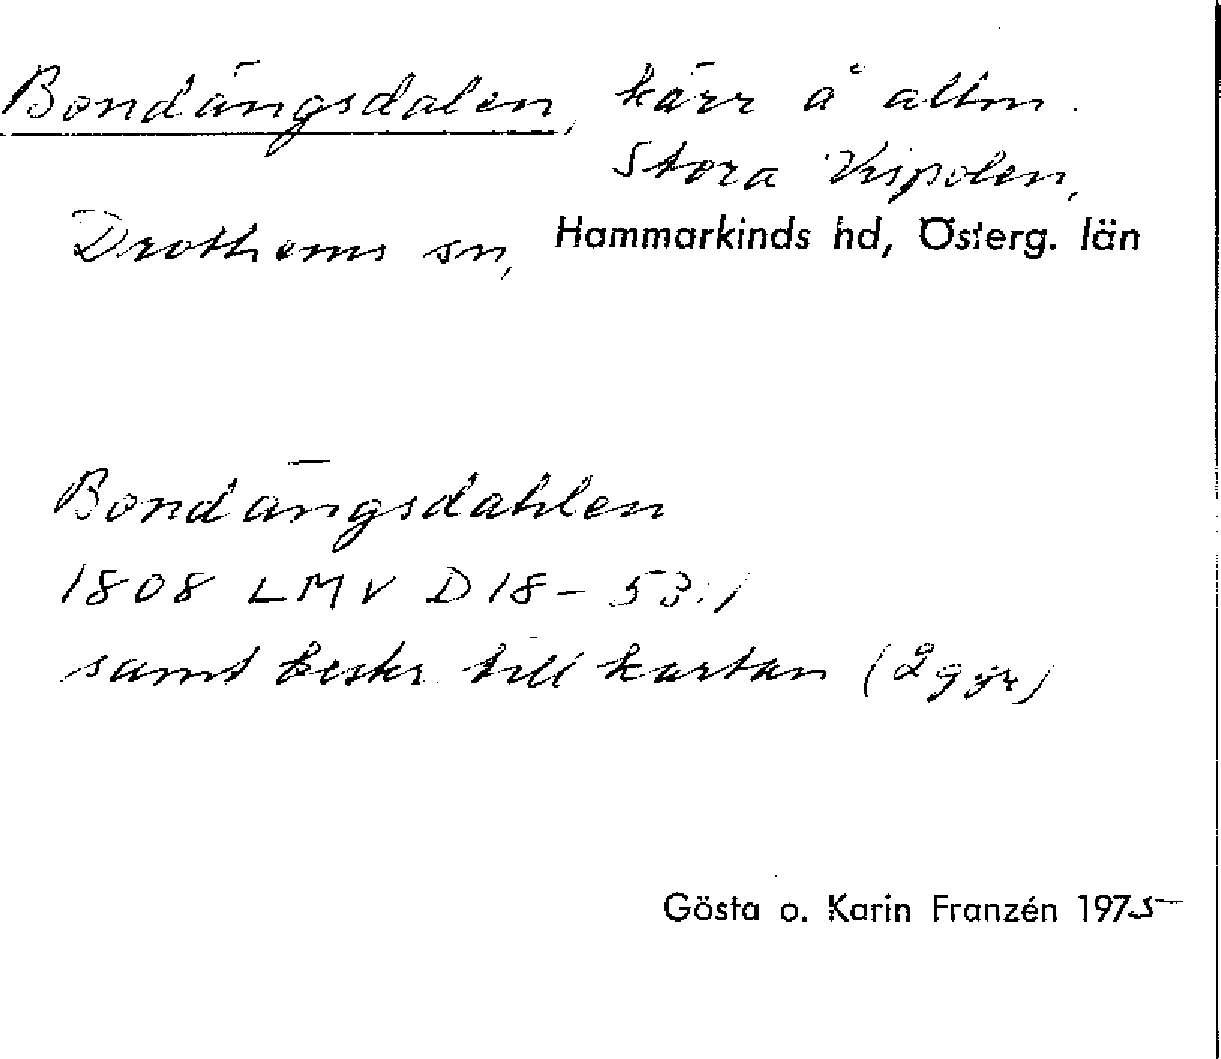 Bondängsdalen, kärr å allm.
Stora Vispolen,
Drothems sn, Hammarkinds hd, Österg. län
Bondängsdahlen
1808 LMV D18-53:1
samt beskr till kartan (2 ggr)
Gösta o. Karin Franzén 1975